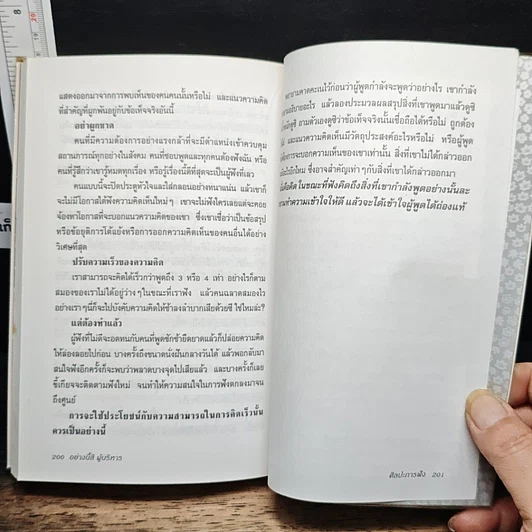 แสดงออกมาจากการพบเห็นของคนคนนั้นหรือไม่ และแนวความคิด
ที่สำคัญที่ผูกพันอยู่กับข้อเท็จจริงอันนี้
อย่าผูกขาด
คนที่มีความต้องการอย่างแรงกล้าที่จะมีตำแหน่งเข้าควบคุม
สถานการณ์ทุกอย่างในสังคม คนที่ชอบพูดและทุกคนต้องฟังฉัน หรือ
คนที่รู้สึกว่าเขารู้หมดทุกเรื่อง หรือรู้เรื่องนี้ดีที่สุดจะเป็นผู้ฟังที่เลว
คนแบบนี้จะปิดประตูหัวใจและใส่กลอนอย่างหนาแน่น แล้วเขาก็
จะไม่มีโอกาสได้ฟังความคิดเห็นใหม่ๆ เขาจะไม่ฟังใครเลยแต่จะคอย
จ้องหาโอกาสที่จะบอกแนวความคิดของเขา ซึ่งเขาเชื่อว่าเป็นข้อสรุป
หรือข้อยุติการโต้แย้งหรือการออกความคิดเห็นของคนอื่นได้อย่าง
วิเศษที่สุด
ปรับความเร็วของความคิด
เราสามารถจะคิดได้เร็วกว่าพูดถึง 3 หรือ 4 เท่า อย่างไรก็ตาม
สมองของเราไม่ได้อยู่ว่างๆในขณะที่เราฟัง แล้วคนฉลาดสมองไว
อย่างเราๆนี้ก็จะไปบังคับความคิดให้ช้าลงลำบากเสียด้วยซี ใช่ไหมล่ะ?
แต่ต้องทำแล้ว
ผู้ฟังที่ไม่ดีจะอดทนกับคนที่พูดซักช้ายืดยาดแล้วก็ปล่อยความคิด
ให้ล่องลอยไปก่อน บางครั้งถึงขนาดนั่งฝันกลางวันได้ แล้วพอกลับมา
สนใจฟังอีกครั้งก็จะพบว่าพลาดบางจุดไปเสียแล้ว และบางครั้งก็เลย
ขี้เกียจจะติดตามฟังใหม่ จนทำให้ความสนใจในการฟังตกลงมาจน
ถึงศูนย์
การจะใช้ประโยชน์กับความสามารถในการคิดเร็วนั้น
ควรเป็นอย่างนี้
200 อย่างนี้สิ ผู้บริหาร
พยายามคาดคะเนไว้ก่อนว่าผู้พูดกำลังจะพูดว่าอย่างไร เขากำลัง
อธิบายอะไร แล้วลองประมวลผลสรุปสิ่งที่เขาพูดมาแล้วดูซิ
ถามตัวเองดูซิว่าข้อเท็จจริงนั้นเชื่อถือได้หรือไม่ ถูกต้อง
และแนวความคิดเห็นมีวัตถุประสงค์อะไรหรือไม่ หรือผู้พูด
จะบอกความเห็นของเขาเท่านั้น สิ่งที่เขาไม่ได้กล่าวออก
ซึ่งอาจสำคัญเท่าๆกับสิ่งที่เขาได้กล่าวออกมา
คิด ในขณะที่ฟังคิดถึงสิ่งที่เขากำลังพูดอย่างนั้นและ
ทำความเข้าใจให้ดี แล้วจะได้เข้าใจผู้พูดได้ถ่องแท้
ศิลปะการฟัง 201